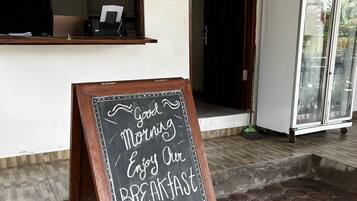 Good
Morning
Enjoy Our
BREAKFAST